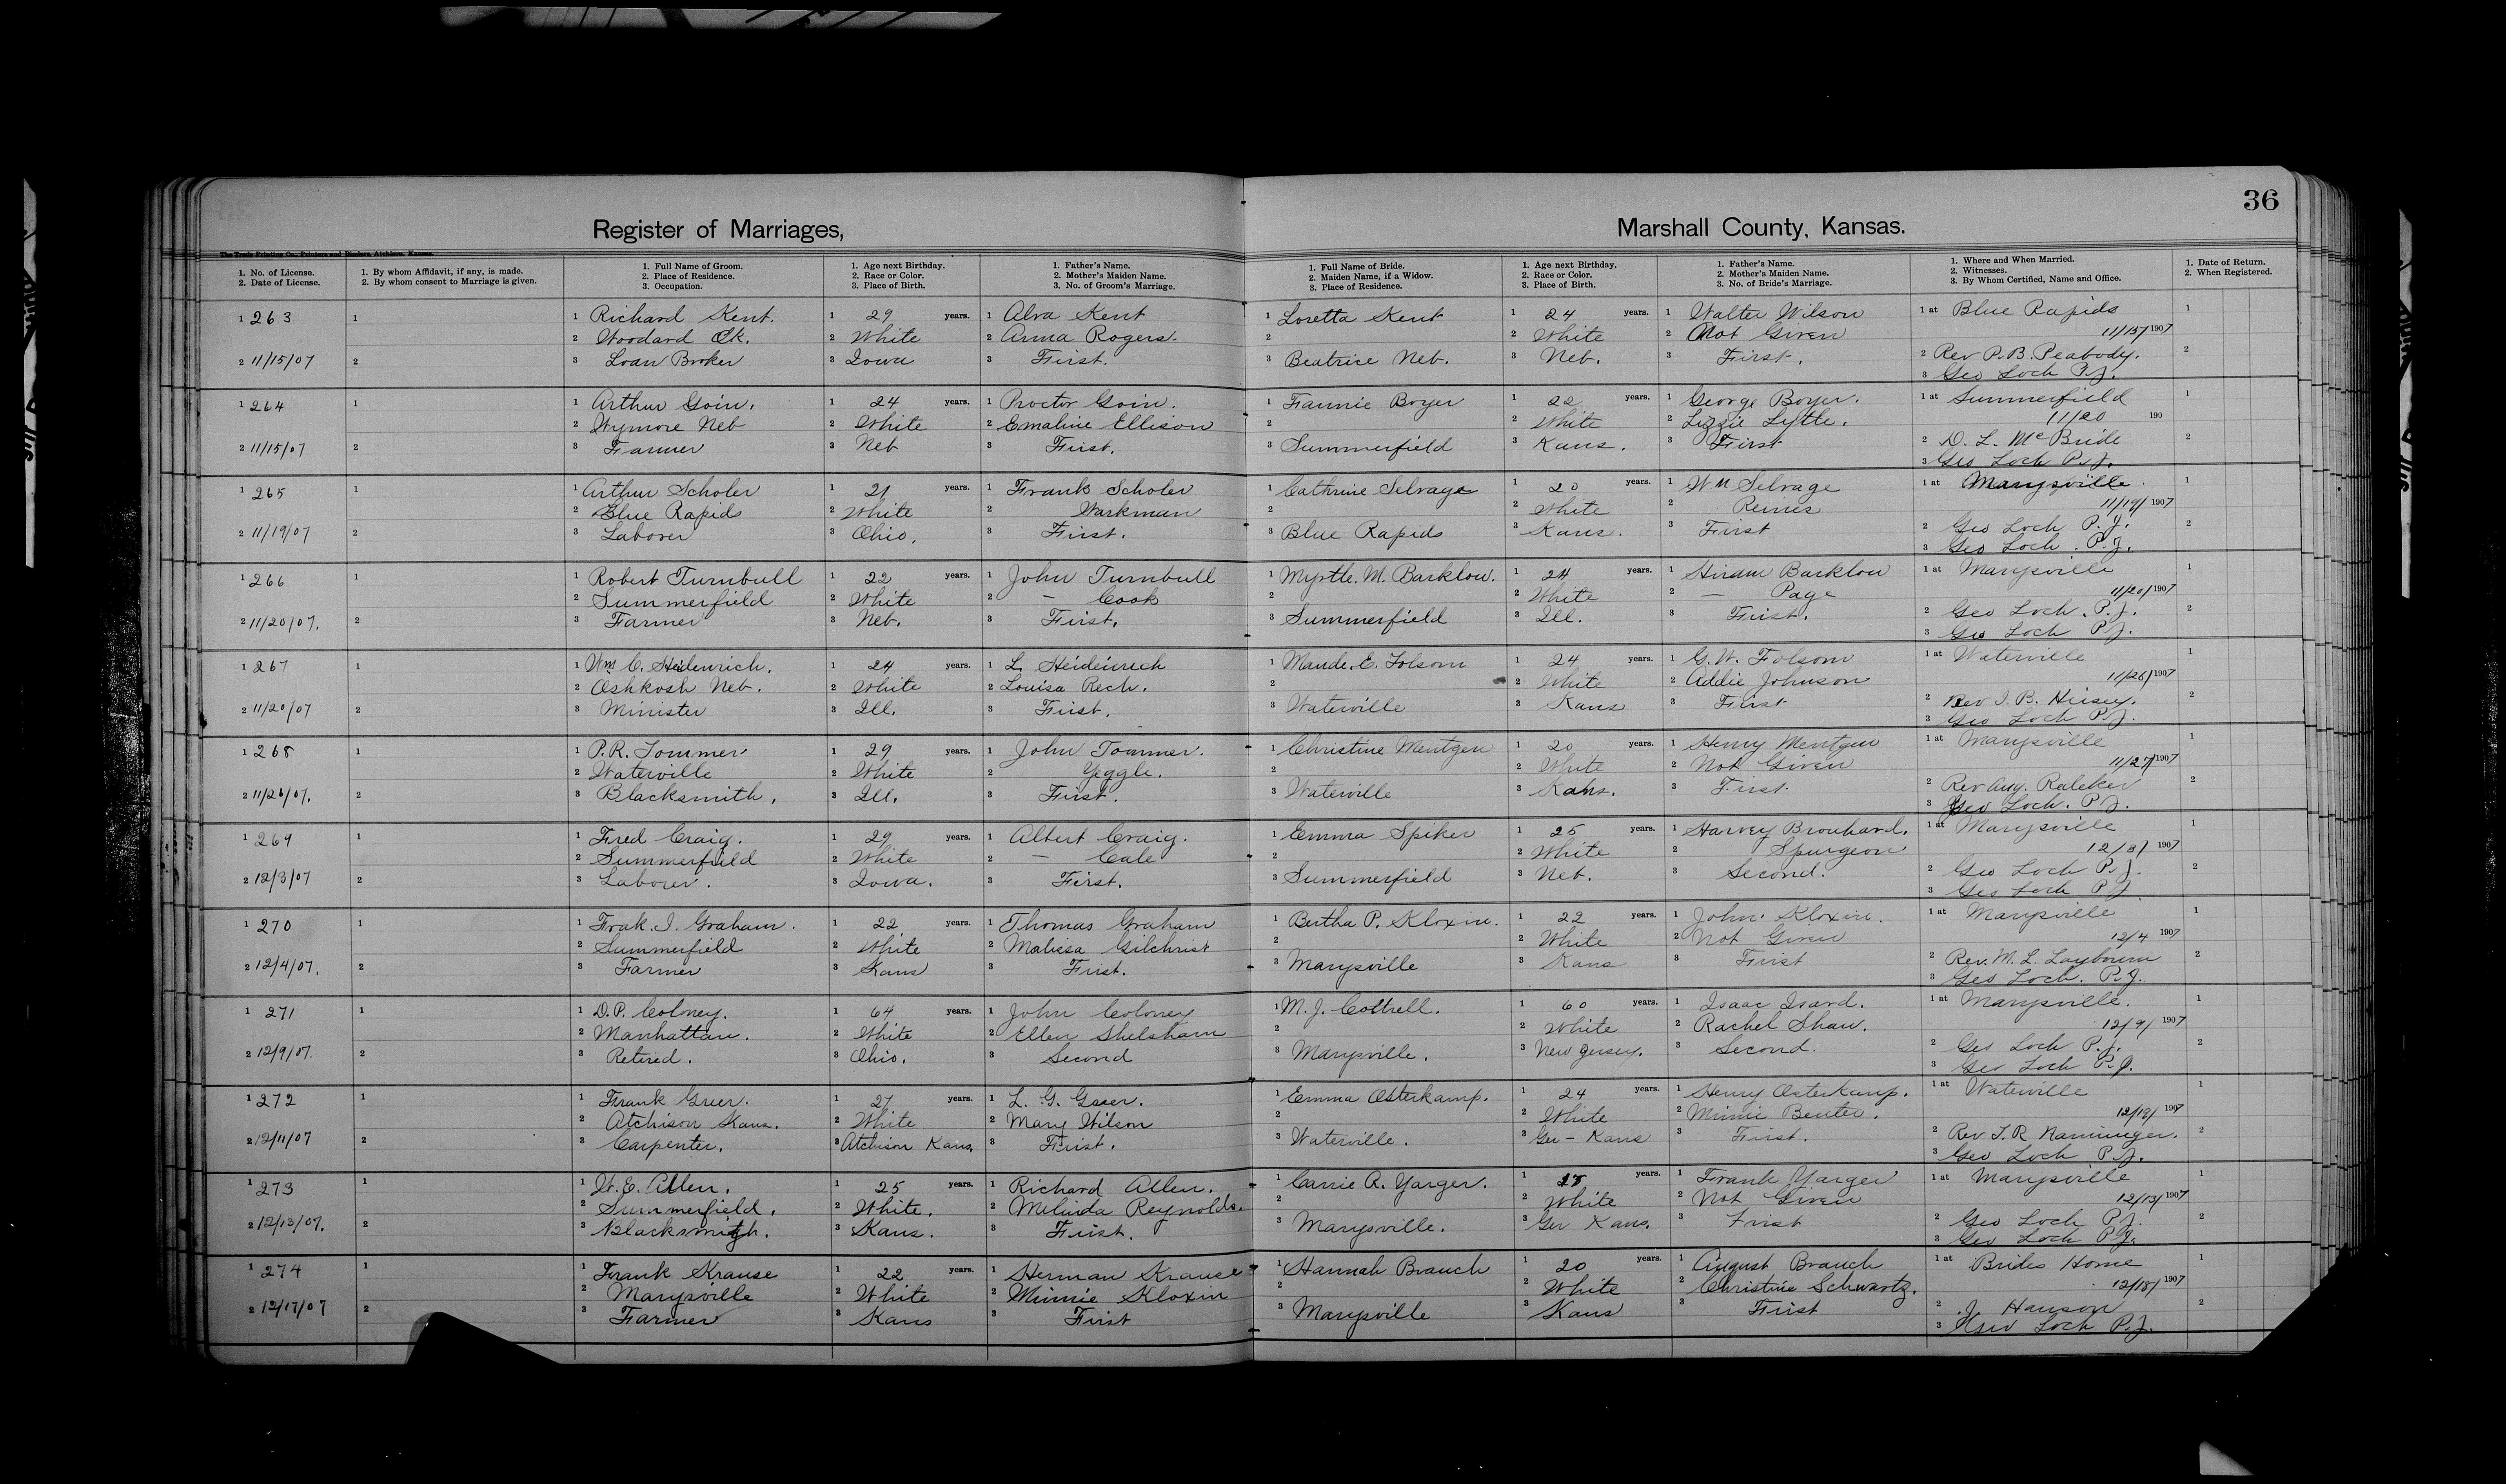 36
Register of Marriages,
Marshall County, Kansas.
The Trade Printing Co., Printers and Binders, Atchison, Kansas.
1. No. of License.
2. Date of License.
1. By whom Affidavit, if any, is made.
2. By whom consent to Marriage is given.
1. Full Name of Groom.
2. Place of Residence.
3. Occupation.
1. Age next Birthday.
2. Race or Color.
3. Place of Birth.
1. Father's Name.
2. Mother's Maiden Name.
3. No. of Groom's Marriage.
1. Full Name of Bride.
2. Maiden Name, if a Widow.
3. Place of Residence.
1. Age next Birthday.
2. Race or Color.
3. Place of Birth.
1. Father's Name.
2. Mother's Maiden Name.
3. No. of Bride's Marriage.
1. Where and When Married.
2. Witnesses.
3. By Whom Certified, Name and Office.
1. Date of Return.
2. When Registered.
1 263 1 1 Richard Kent. 1 29 years. 1 Alva Kent 1 Loretta Kent 1 24 years. 1 Walter Wilson 1 at Blue Rapids 1
2 Woodard Ok. 2 White 2 Anna Rogers. 2 2 White 2 Not Given 11/15/1907
2 11/15/07 2 3 Loan Broker 3 Iowa 3 First. 3 Beatrice Neb. 3 Neb. 3 First. 2 Rev P. B. Peabody. 2
3 Geo Loch P.J.
1 264 1 1 Arthur Goin. 1 24 years. 1 Proctor Goin. 1 Fannie Boyer 1 22 years. 1 George Boyer. 1 at Summerfield 1
2 Wymore Neb 2 White 2 Emaline Ellison 2 2 White 2 Lizzie Lytle. 11/20 190
2 11/15/07 2 3 Farmer 3 Neb 3 First. 3 Summerfield 3 Kans. 3 First 2 D. L. McBride 2
3 Geo Loch P.J.
1 265 1 1 Arthur Scholer 1 21 years. 1 Frank Scholer 1 Cathrine Selvage 1 20 years. 1 Wm Selvage 1 at Marysville. 1
2 Blue Rapids 2 White 2 Workman 2 2 White 2 11/19/1907
2 11/19/07 2 3 Laborer 3 Ohio. 3 First. 3 Blue Rapids 3 Kans. 3 First 2 Geo Loch P.J. 2
3 Geo Loch. P.J.
1 266 1 1 Robert Turnbull 1 22 years. 1 John Turnbull 1 Myrtle. M. Barklow. 1 24 years. 1 Hiram Barklow 1 at Marysville 1
2 Summerfield 2 White 2 — Cook 2 2 White 2 — Page 11/20/1907
2 11/20/07. 2 3 Farmer 3 Neb. 3 First. 3 Summerfield 3 Ill. 3 First. 2 Geo Loch. P.J. 2
3 Geo Loch P.J.
1 267 1 1 Wm C. Heidenrich. 1 24 years. 1 L. Heidenrich 1 Maude. E. Folsom 1 24 years. 1 G. W. Folsom 1 at Waterville 1
2 Oshkosh Neb. 2 White 2 Louisa Rech. 2 2 White 2 Addie Johnson 1907
2 11/20/07 2 3 Minister 3 Ill. 3 First. 3 Waterville 3 Kans 3 First 2 Rev 2
3 Geo Loch P.J.
1 268 1 1 P. R. Tommer 1 29 years. 1 John Tommer. 1 Christine Mentgen 1 20 years. 1 Henry Mentgen 1 at Marysville 1
2 Waterville 2 White 2 Yeggle. 2 2 White 2 Not Given 11/27/1907
2 11/26/07. 2 3 Blacksmith. 3 Ill. 3 First. 3 Waterville 3 Kans. 3 First. 2 Rev Aug. 2
3 Geo Loch. P.J.
1 269 1 1 Fred Craig. 1 29 years. 1 Albert Craig. 1 Emma Spiker 1 25 years. 1 Harvey Brouhard. 1 at Marysville 1
2 Summerfield 2 White 2 — Cale 2 2 White 2 Spurgeon 12/3/1907
2 12/3/07 2 3 Laborer. 3 Iowa. 3 First. 3 Summerfield 3 Neb. 3 Second. 2 Geo Loch P.J. 2
3 Geo Loch P.J
1 270 1 1 Frak. I. Graham. 1 22 years. 1 Thomas Graham 1 Bertha P. Kloxin. 1 22 years. 1 John Kloxin. 1 at Marysville 1
2 Summerfield 2 White 2 Malissa Gilchrist 2 2 White 2 Not Given 12/4 1907
2 12/4/07. 2 3 Farmer 3 Kans 3 First. 3 Marysville 3 Kans 3 First 2 Rev. M. L. Laybourn 2
3 Geo Loch. P.J.
1 271 1 1 D. P. Coloney. 1 64 years. 1 John Coloney 1 M. J. Cottrell. 1 60 years. 1 Isaac Isard. 1 at Marysville. 1
2 Manhattan. 2 White 2 Ellen Shelsham 2 2 White 2 Rachel Shaw. 12/9/1907
2 12/9/07. 2 3 Retired. 3 Ohio. 3 Second 3 Marysville. 3 New Jersey. 3 Second. 2 Geo Loch P.J. 2
3 Geo Loch P.J.
1 272 1 1 Frank Greer. 1 27 years. 1 L. G. Greer. 1 Emma Osterkamp. 1 24 years. 1 Henry Osterkamp. 1 at Waterville 1
2 Atchison Kans. 2 White 2 Mary Wilson 2 2 White 2 Minni Benter. 1907
2 12/11/07 2 3 Carpenter. 3 Atchison Kans. 3 First. 3 Waterville. 3 Ger - Kans 3 First. 2 Rev 2
3 Geo Loch P.J.
1 273 1 1 W. E. Allen. 1 25 years. 1 Richard Allen. 1 Carrie A. Yarger. 1 years. 1 Frank Yarger 1 at Marysville 1
2 Summerfield. 2 White. 2 Melinda Reynolds. 2 2 White 2 Not Given 12/13/1907
2 12/13/07. 2 3 Blacksmith. 3 Kans. 3 First. 3 Marysville. 3 Ger Kans. 3 First 2 Geo Loch P.J. 2
3 Geo Loch P.J.
1 274 1 1 Frank Krause 1 22 years. 1 Herman Krause 1 Hannah Brauch 1 20 years. 1 August Brauch 1 at Brides Home 1
2 Marysville 2 White 2 Minnie Kloxin 2 2 White 2 Christine Schwartz. 12/18/1907
2 12/17/07 2 3 Farmer 3 Kans 3 First 3 Marysville 3 Kans 3 First 2 J. Hanson 2
3 Geo Loch P.J.